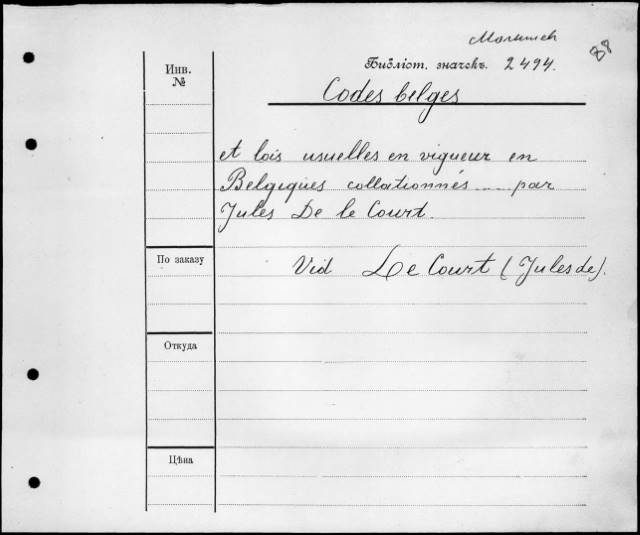 88
Инв.
№
Библіот. значекъ. 2494.
Codes belges
et lois usuelles en vigueur en
Belgiques collationnés .... par
Jules De le Court.
По заказу
Vid De Court (Jules de).
Откуда
Цѣна